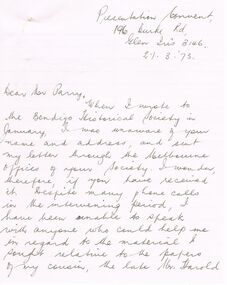 Presentation Convent,
196, Burke Rd,
Glen Iris 3146.
21.3.'75.
Dear Mr Parry,
When I wrote to
the Bendigo Historical Society in
January, I was unaware of your
name and address, and sent
my letter through the Melbourne
offices of your Society. I wonder,
therefore, if you have received
it. Despite many phone calls
in the intervening period, I
have been unable to speak
with anyone who could help me
in regard to the material I
sought relative to the papers
of my cousin, the late Mr. Harold